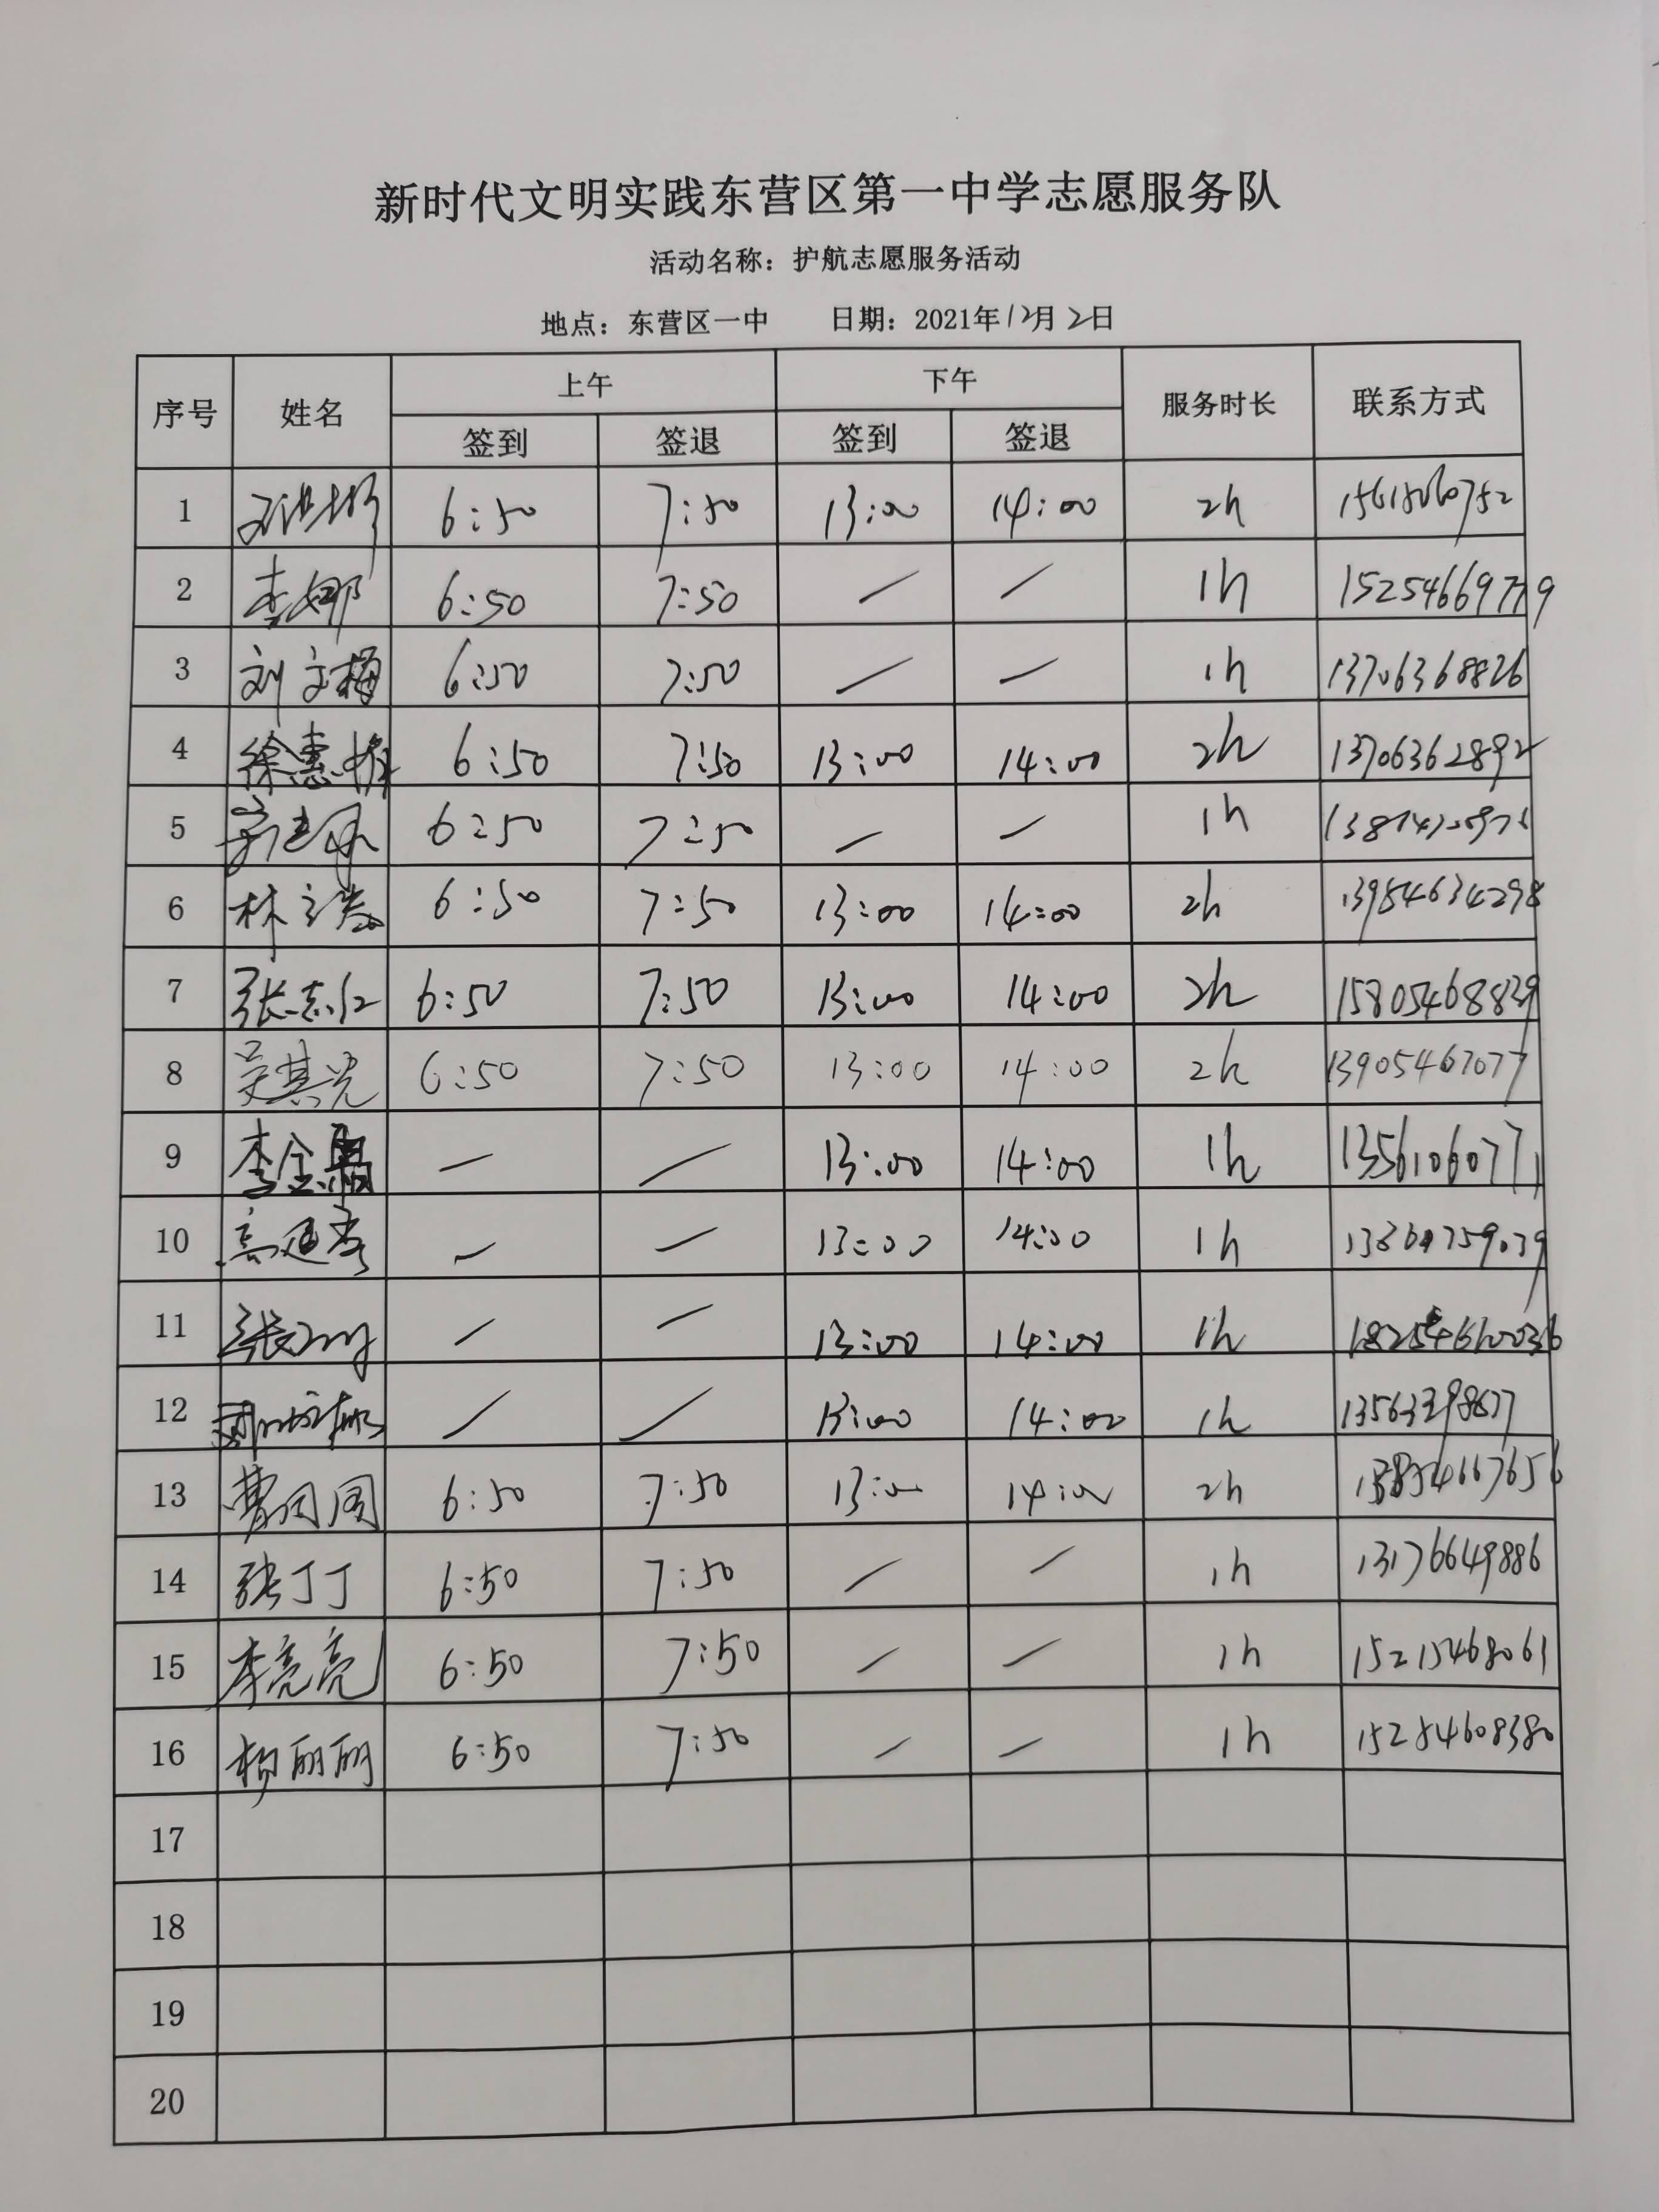 新时代文明实践东营区第一中学志愿服务队
活动名称：护航志愿服务活动
地点：东营区一中 日期：2021年12月2日
序号 姓名 上午 下午 服务时长 联系方式
签到 签退 签到 签退
1 6:50 7:50 13:00 14:00 2h
2 李娜 6:50 7:50 — — 1h
3 刘文梅 6:50 7:50 — — 1h 13706368826
4 6:50 7:50 13:00 14:00 2h 13706362892
5 6:50 7:50 — — 1h
6 6:50 7:50 13:00 14:00 2h 13954634298
7 张志仁 6:50 7:50 13:00 14:00 2h 15805468839
8 吴其光 6:50 7:50 13:00 14:00 2h 13905467077
9 — — 13:00 14:00 1h 13561060771
10 — — 13:00 14:00 1h
11 — — 13:00 14:00 1h
12 — — 13:00 14:00 1h
13 曹团周 6:50 7:50 13:00 14:00 2h
14 张丁丁 6:50 7:50 — — 1h 13176649886
15 李亮亮 6:50 7:50 — — 1h 15215468061
16 杨丽丽 6:50 7:50 — — 1h
17
18
19
20